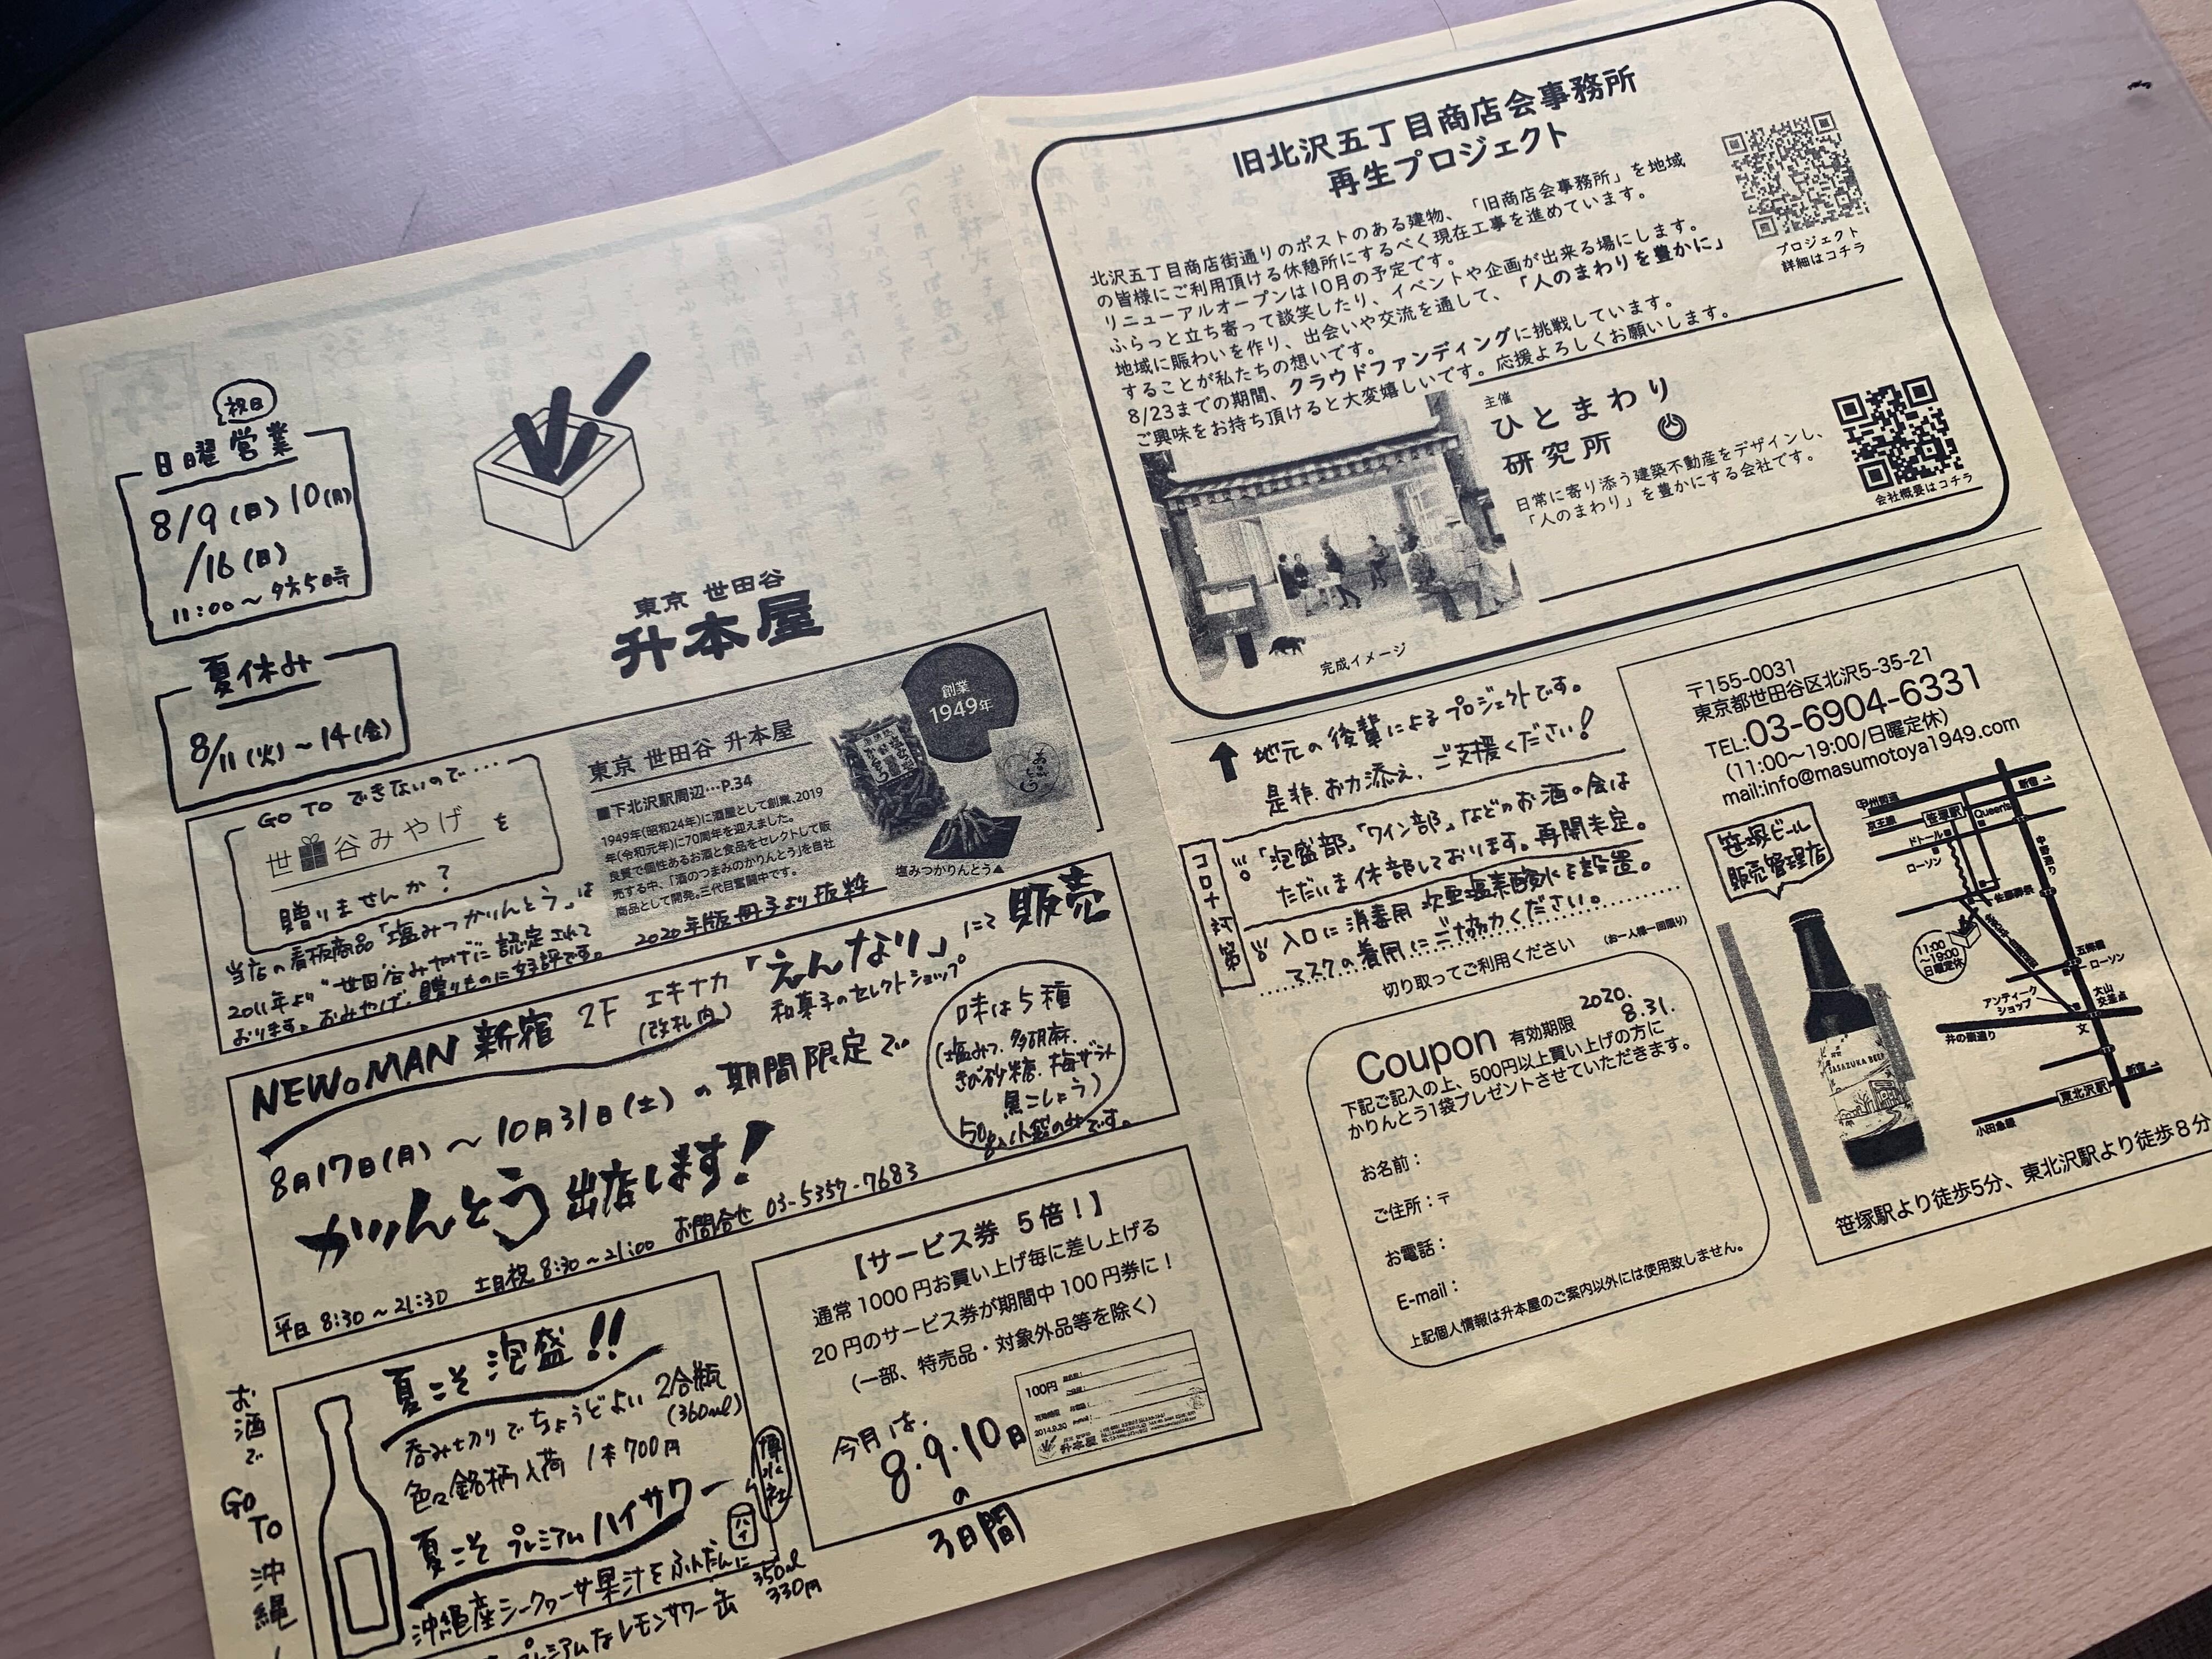 祝日
日曜営業
8/9(日) 10(月)
/16(日)
11:00〜夕方5時
夏休み
8/11(火)〜14(金)
東京 世田谷
升本屋
GO TO できないので・・・・
世谷みやげ を
贈りませんか?
当店の看板商品「塩みつかりんとう」は
2011年より"世田谷みやげ"に認定されて
おります。おみやげ、贈りものに好評です。
東京 世田谷 升本屋
■下北沢駅周辺…P.34
1949年(昭和24年)に酒屋として創業、2019
年(令和元年)に70周年を迎えました。
良質で個性あるお酒と食品をセレクトして販
売する中、「酒のつまみのかりんとう」を自社
商品として開発。三代目奮闘中です。
創業
1949年
塩みつかりんとう▲
2020年版冊子より抜粋
NEWoMAN 新宿 2F エキナカ「えんなり」にて 販売
(改札内) 和菓子のセレクトショップ
8月17日(月)〜10月31日(土)の期間限定で
かりんとう 出店します!
味は5種
(塩みつ、多胡麻、
きび砂糖、梅ザラメ
黒こしょう)
50g入小袋のみです。
平日 8:30〜21:30 土日祝 8:30〜21:00 お問合せ 03-5357-7683
お酒で GO TO 沖縄
夏こそ 泡盛!!
呑み切りでちょうどよい 2合瓶
(360ml)
色々銘柄入荷 1本700円
夏こそ プレミアムハイサワー
博水社
ハイ
沖縄産シークヮーサ果汁をふんだんに
プレミアムなレモンサワー缶
350ml
330円
【サービス券 5倍!】
通常1000円お買い上げ毎に差し上げる
20円のサービス券が期間中100円券に!
(一部、特売品・対象外品等を除く)
100円
升本屋
今月は、
8・9・10日
の
3日間
旧北沢五丁目商店会事務所
再生プロジェクト
北沢五丁目商店街通りのポストのある建物、「旧商店会事務所」を地域
の皆様にご利用頂ける休憩所にするべく現在工事を進めています。
リニューアルオープンは10月の予定です。
ふらっと立ち寄って談笑したり、イベントや企画が出来る場にします。
地域に賑わいを作り、出会いや交流を通して、「人のまわりを豊かに」
することが私たちの想いです。
8/23までの期間、クラウドファンディングに挑戦しています。
ご興味をお持ち頂けると大変嬉しいです。応援よろしくお願いします。
プロジェクト
詳細はコチラ
主催
ひとまわり
研究所
日常に寄り添う建築不動産をデザインし、
「人のまわり」を豊かにする会社です。
会社概要はコチラ
完成イメージ
地元の後輩によるプロジェクトです。
是非、お力添え、ご支援ください!
コロナ対策
「泡盛部」「ワイン部」などのお酒の会は
ただいま休部しております。再開未定。
入口に消毒用 次亜塩素酸水を設置。
マスクの着用にご協力ください。
切り取ってご利用ください (お一人様一回限り)
Coupon 有効期限 2020. 8.31.
下記ご記入の上、500円以上買い上げの方に
かりんとう1袋プレゼントさせていただきます。
お名前:
ご住所:〒
お電話:
E-mail:
上記個人情報は升本屋のご案内以外には使用致しません。
〒155-0031
東京都世田谷区北沢5-35-21
TEL:03-6904-6331
(11:00〜19:00/日曜定休)
mail:info@masumotoya1949.com
笹塚ビール
販売管理店
SASAZUKA BEER
甲州街道
京王線
笹塚駅
Queens
新宿
ドトール
ローソン
中野通り
11:00
〜19:00
日曜定休
五條橋
ローソン
大山
交差点
アンティーク
ショップ
井の頭通り
東北沢駅
新宿
小田急線
笹塚駅より徒歩5分、東北沢駅より徒歩8分